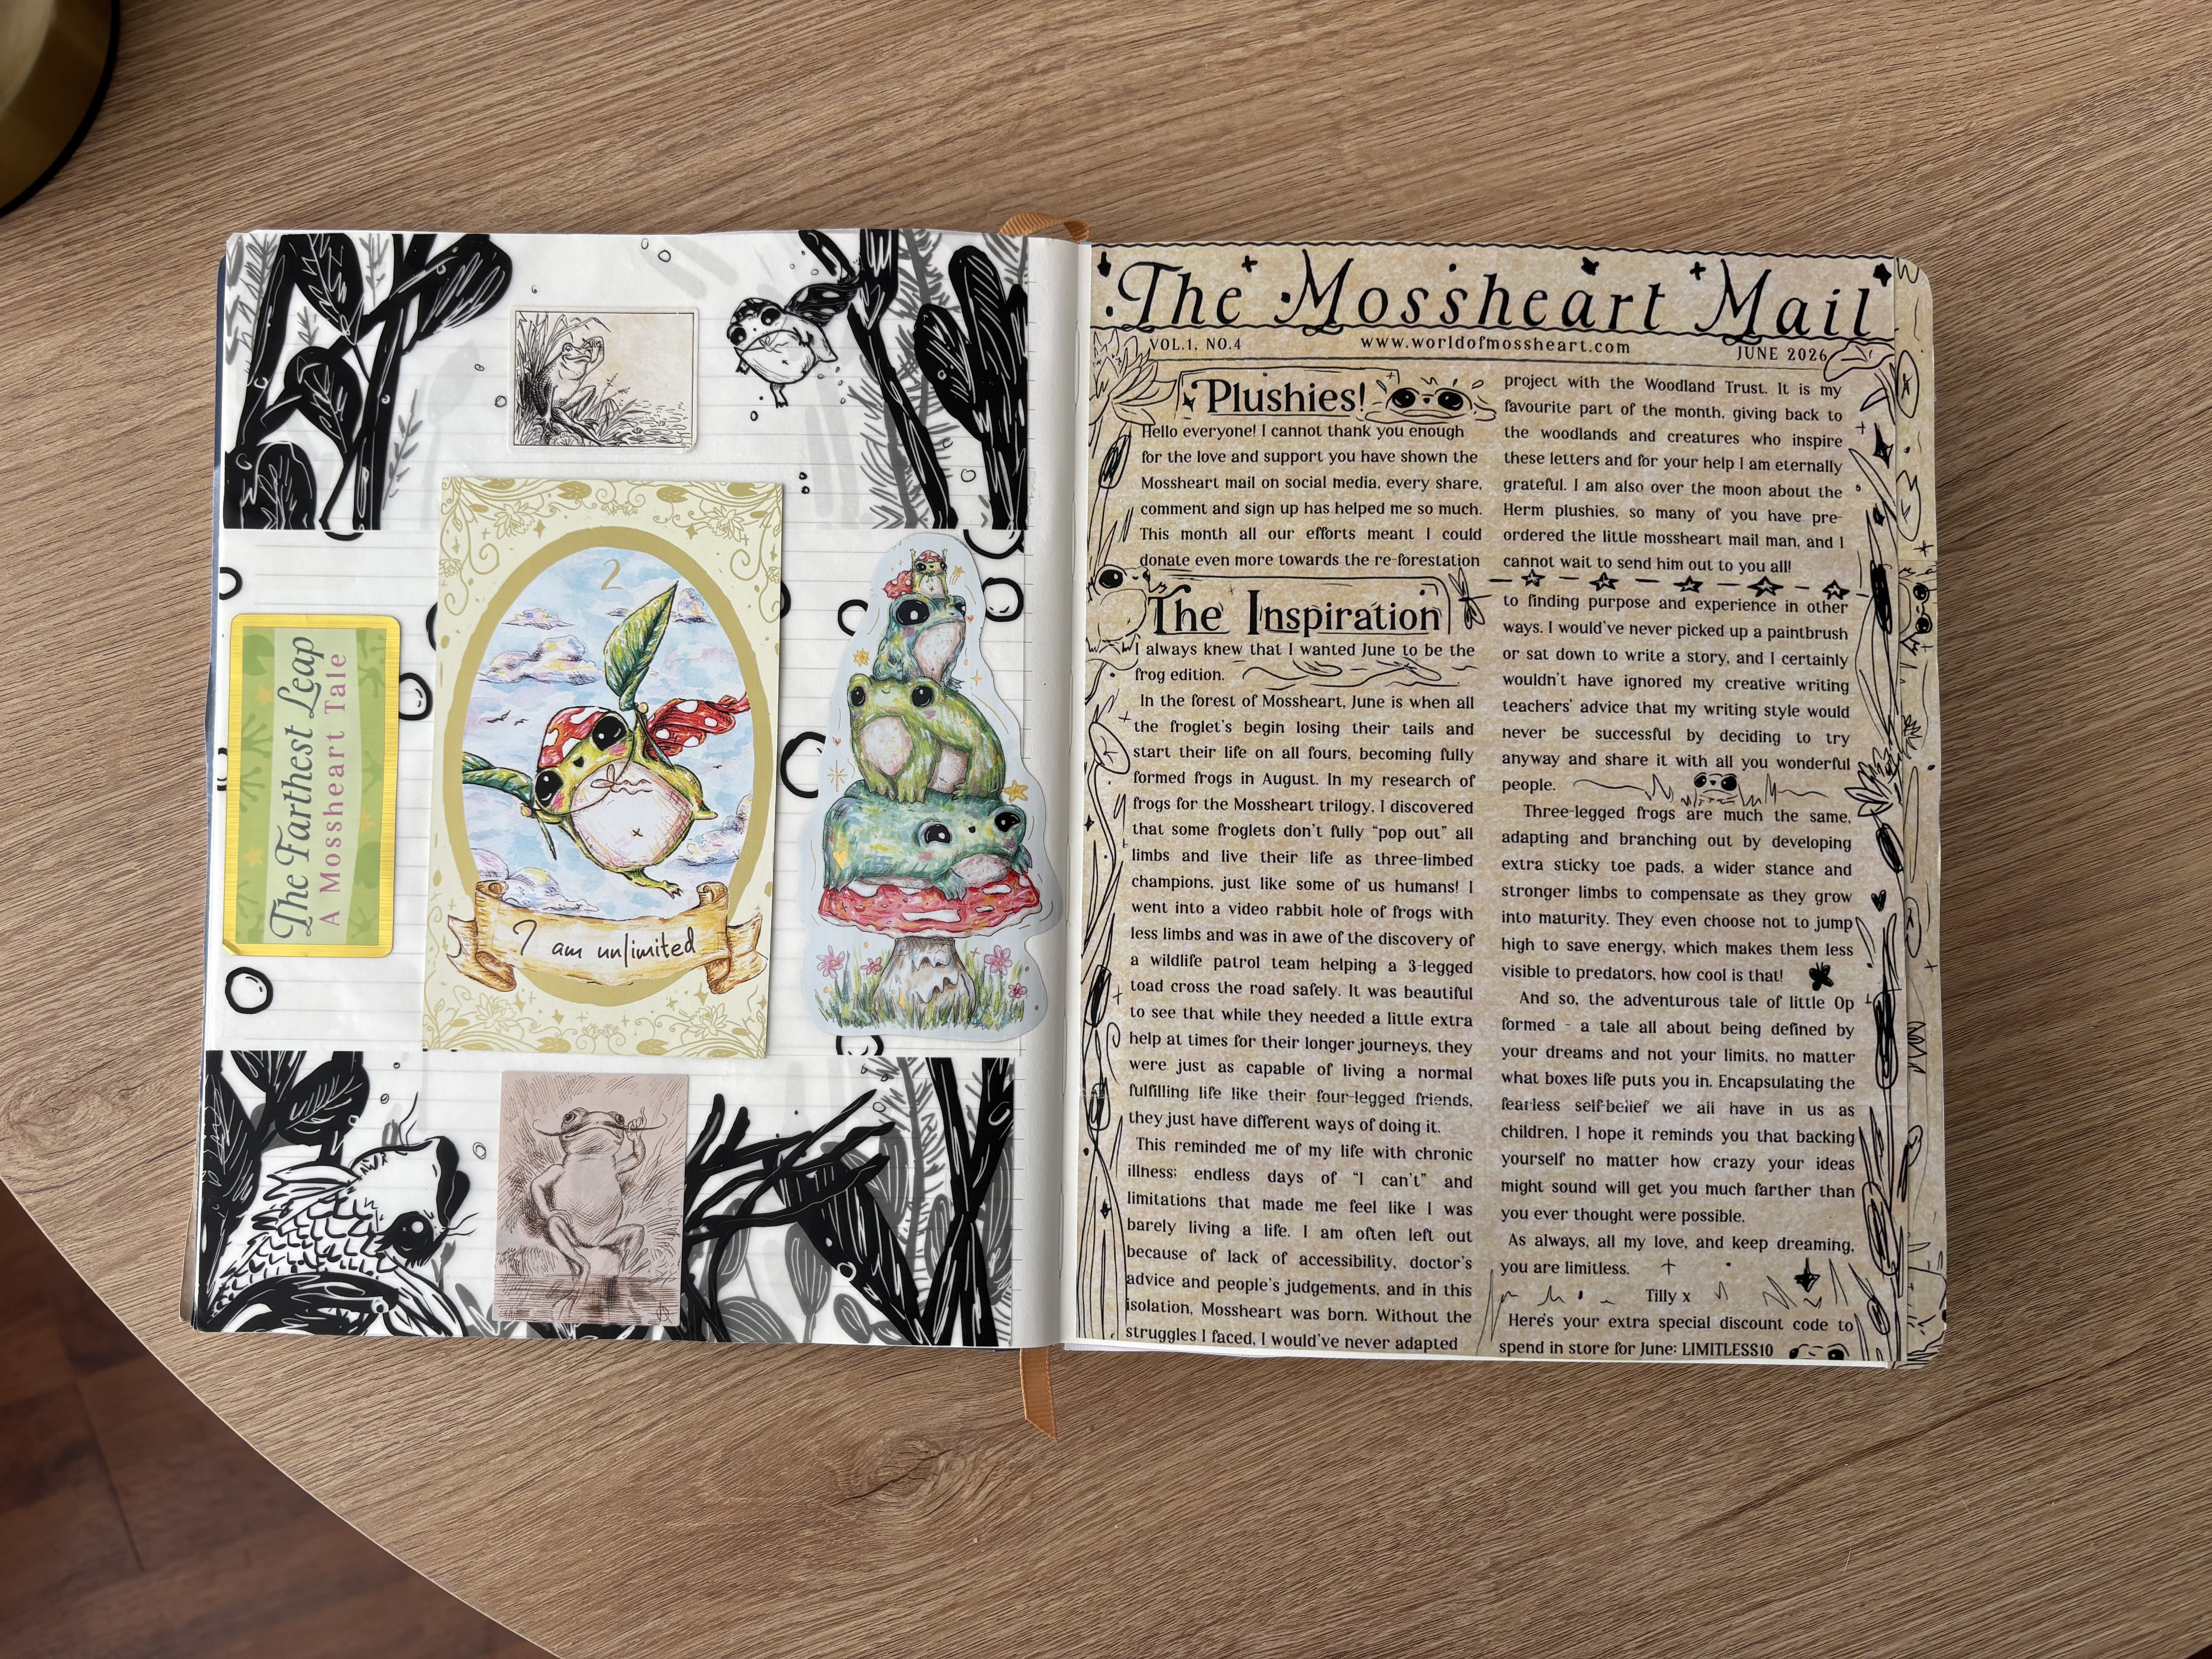 The Farthest Leap
A Mossheart Tale
2
I am unlimited
The Mossheart Mail
VOL.1, NO.4
www.worldofmossheart.com
JUNE 2026
Plushies!
Hello everyone! I cannot thank you enough
for the love and support you have shown the
Mossheart mail on social media, every share,
comment and sign up has helped me so much.
This month all our efforts meant I could
donate even more towards the re-forestation
project with the Woodland Trust. It is my
favourite part of the month, giving back to
the woodlands and creatures who inspire
these letters and for your help I am eternally
grateful. I am also over the moon about the
Herm plushies, so many of you have pre-
ordered the little mossheart mail man, and I
cannot wait to send him out to you all!
The Inspiration
I always knew that I wanted June to be the
frog edition.
In the forest of Mossheart, June is when all
the froglet's begin losing their tails and
start their life on all fours, becoming fully
formed frogs in August. In my research of
frogs for the Mossheart trilogy, I discovered
that some froglets don't fully "pop out" all
limbs and live their life as three-limbed
champions, just like some of us humans! I
went into a video rabbit hole of frogs with
less limbs and was in awe of the discovery of
a wildlife patrol team helping a 3-legged
toad cross the road safely. It was beautiful
to see that while they needed a little extra
help at times for their longer journeys, they
were just as capable of living a normal
fulfilling life like their four-legged friends,
they just have different ways of doing it.
This reminded me of my life with chronic
illness; endless days of "I can't" and
limitations that made me feel like I was
barely living a life. I am often left out
because of lack of accessibility, doctor's
advice and people's judgements, and in this
isolation, Mossheart was born. Without the
struggles I faced, I would've never adapted
to finding purpose and experience in other
ways. I would've never picked up a paintbrush
or sat down to write a story, and I certainly
wouldn't have ignored my creative writing
teachers' advice that my writing style would
never be successful by deciding to try
anyway and share it with all you wonderful
people.
Three-legged frogs are much the same,
adapting and branching out by developing
extra sticky toe pads, a wider stance and
stronger limbs to compensate as they grow
into maturity. They even choose not to jump
high to save energy, which makes them less
visible to predators, how cool is that!
And so, the adventurous tale of little Op
formed - a tale all about being defined by
your dreams and not your limits, no matter
what boxes life puts you in. Encapsulating the
fearless self-belief we all have in us as
children, I hope it reminds you that backing
yourself no matter how crazy your ideas
might sound will get you much farther than
you ever thought were possible.
As always, all my love, and keep dreaming,
you are limitless.
Tilly x
Here's your extra special discount code to
spend in store for June: LIMITLESS10